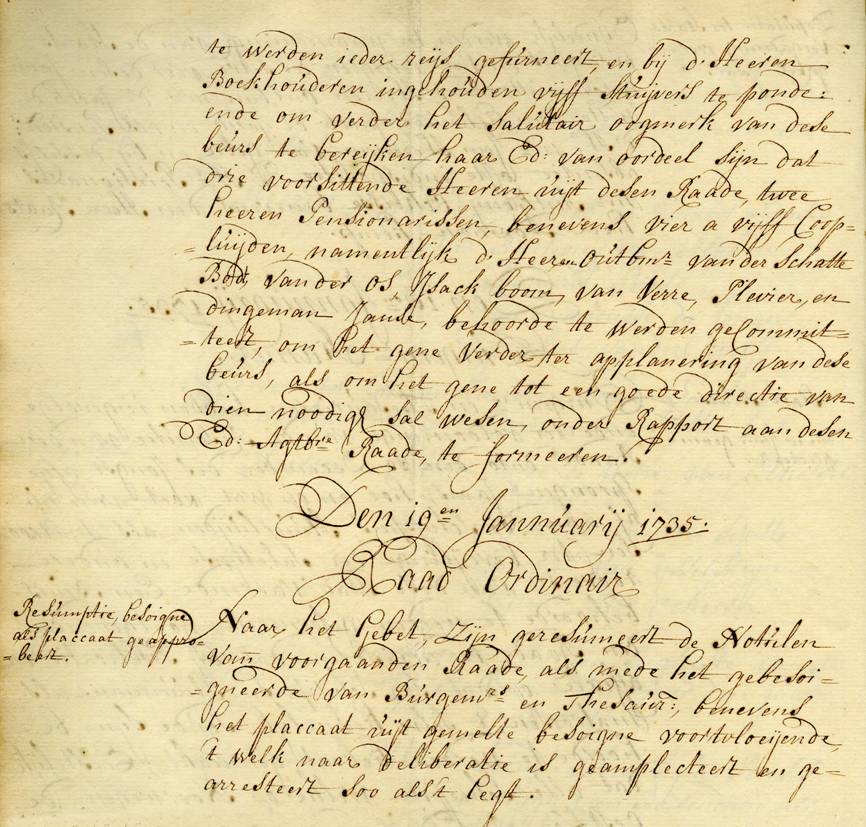 te werden ieder reijs gefurneert, en bij d'Heeren
Boekhouderen ingehouden vijff stuijvers te ponde:
ende om verder het salutair oogmerk van dese
beurs te bereijken haar Ed: van oordeel sijn dat
drie voorsittende Heeren uijt desen Raade, twee
heeren Pensionarissen, benevens vier a vijff Coop-
=luijden, namentlijk d'Heeren Outbmr van der Schatte
van der Os Jsack boom, van Verre, Plevier, en
dingeman Janse, behoorde te werden geCommit=
=teert, om het gene verder ter applanering van dese
beurs, als om het gene tot een goede directie van
dien noodig sal wesen, onder Rapport aan desen
Ed: Agtbre Raade, te formeeren.
Den 19en Jannuarij 1735.
Raad Ordinair
Resumptie, besoigne
als placcaat geappro-
=beert.
Naar het Gebet, Zijn geresumeert de Notulen
van voorgaanden Raade, als mede het gebesoi=
=gneerde van Burgemrs en Thesaurs:, benevens
het placcaat uijt gemelte besoigne voortvloeijende,
't welk naar deliberatie is geamplecteert en ge=
arresteert soo als 't legt.